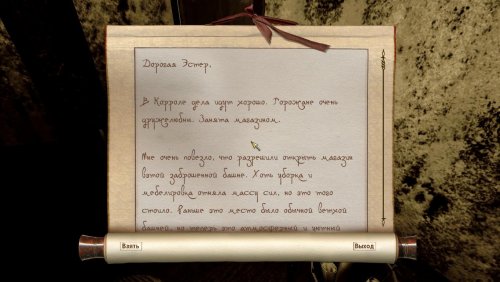 Дорогая Эстер,
В Корроле дела идут хорошо. Горожане очень
дружелюбны. Занята магазином.
Мне очень повезло, что разрешили открыть магазин
в этой заброшенной башне. Хоть уборка и
мебелировка отняла массу сил, но это того
стоило. Раньше это место было обычной ветхой
башней, но теперь это атмосферный и уютный
Взять
Выход